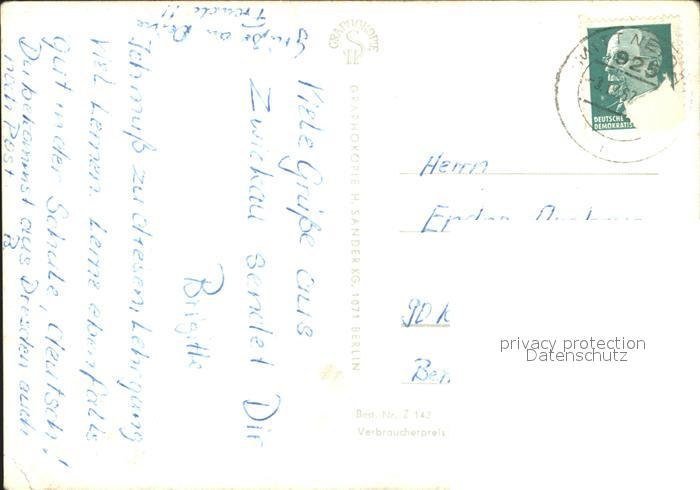 Grüße an Deine
Freude !!
Viele Grüße aus
Zwickau sendet Dir
Brigitte
Ich muß zu diesem Lehrgang
viel Lernen. Lerne ebenfalls
gut in der Schule, deutsch!
Du bekommst aus Dresden auch
noch Post.
B
GRAPHOKOPIE
GRAPHOKOPIE H. SANDER KG, 1071 BERLIN
925
DEUTSCHE
DEMOKRATIS
Herrn
privacy protection
Datenschutz
Best. Nr. Z 142
Verbraucherpreis